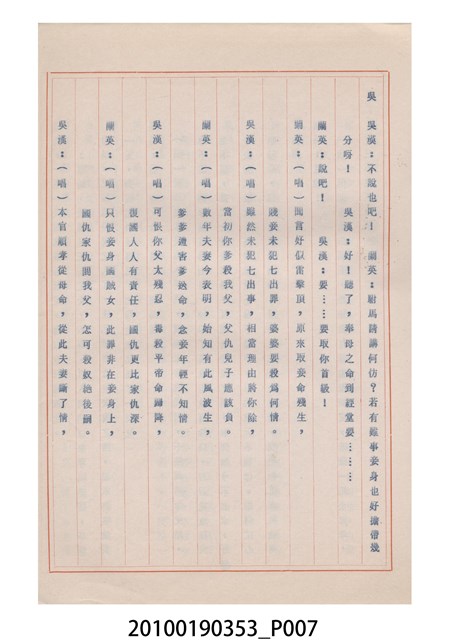 吳 吳漢：不說也吧！ 蘭英：駙馬請講何仿？若有難事妾身也好擔帶幾
分呀！ 吳漢：好！聽了，奉母之命到經堂要………
蘭英：說吧！ 吳漢：要……要取你首級！
蘭英：（唱）聞言好似雷擊頂，原來取妾命殘生，
賤妾未犯七出罪，婆婆要殺為何情。
吳漢：（唱）雖然未犯七出事，相當理由將你餘，
當初你爹殺我父，父仇兒子應該負。
蘭英：（唱）數年夫妻今表明，始知有此風波生，
爹爹遭害爹逃命，念妾年輕不知情。
吳漢：（唱）可恨你父太殘忍，毒殺平帝命歸陰，
報國人人有責任，國仇更比家仇深。
蘭英：（唱）只恨妾身滿賊女，此罪非在妾身上，
國仇家仇關我父，怎可殺奴絶後嗣。
吳漢：（唱）本官願孝從母命，從此夫妻斷了情，
20100190353_P007